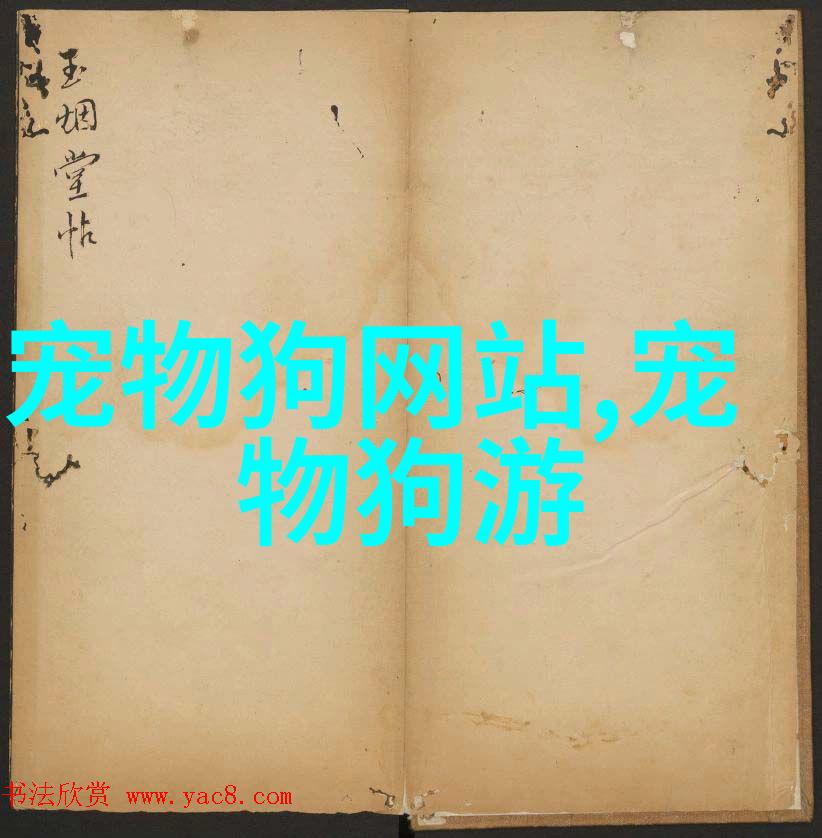 玉烟堂帖
宠物狗网站,宠
物狗游
书法欣赏 www.yac8.com